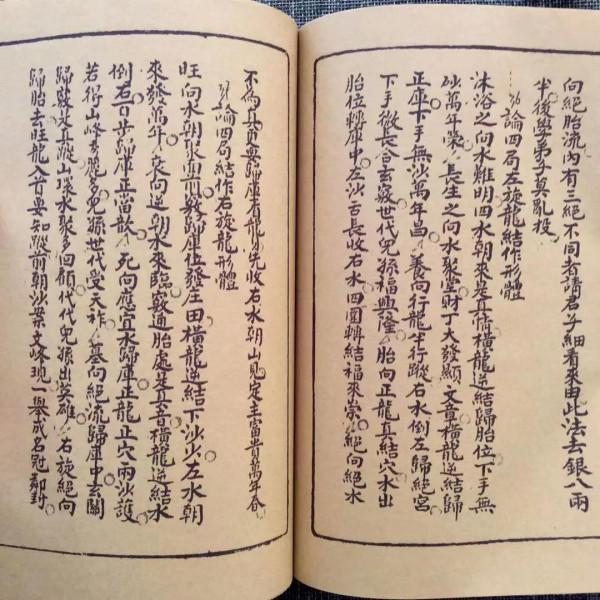 向絕胎流內有三絕不同者請君子細看來由此法去銀八兩
半後學弟子莫亂投
論四局左旋龍結作形體
沐浴之向水難明四水朝來是真情橫龍逆結歸胎位下手無
砂萬年榮長生之向水聚堂財丁大發顯文章橫龍逆結歸
正庫下手無沙萬年昌養向行龍半行蹤右水倒左歸絕宮
下手微長合玄竅世代兒孫福興隆胎向正龍真結穴水出
胎位轉庫中左沙舌長收右水四圍轉結福來崇絕向絕水
不為真貝要歸庫看龍身先收右水朝山見定主富貴萬年春
論四局結作右旋龍形體
旺向水朝聚面前發歸庫位發庄田橫龍逆結下沙少左水朝
來發萬年衰向逆朝水來臨竅通胎處是真音橫龍逆結水
倒右百廿歸庫正當歆死向應宜水歸庫正龍正穴兩沙護
若得山峰秀麗多兒孫世代受天祚墓向絕流歸庫中玄關
歸竅是真蹤山環水聚多回顧代代兒孫出英雄右旋絕向
歸胎去旺龍入首要知蹤前朝沙案文峰現一舉成名冠郡封